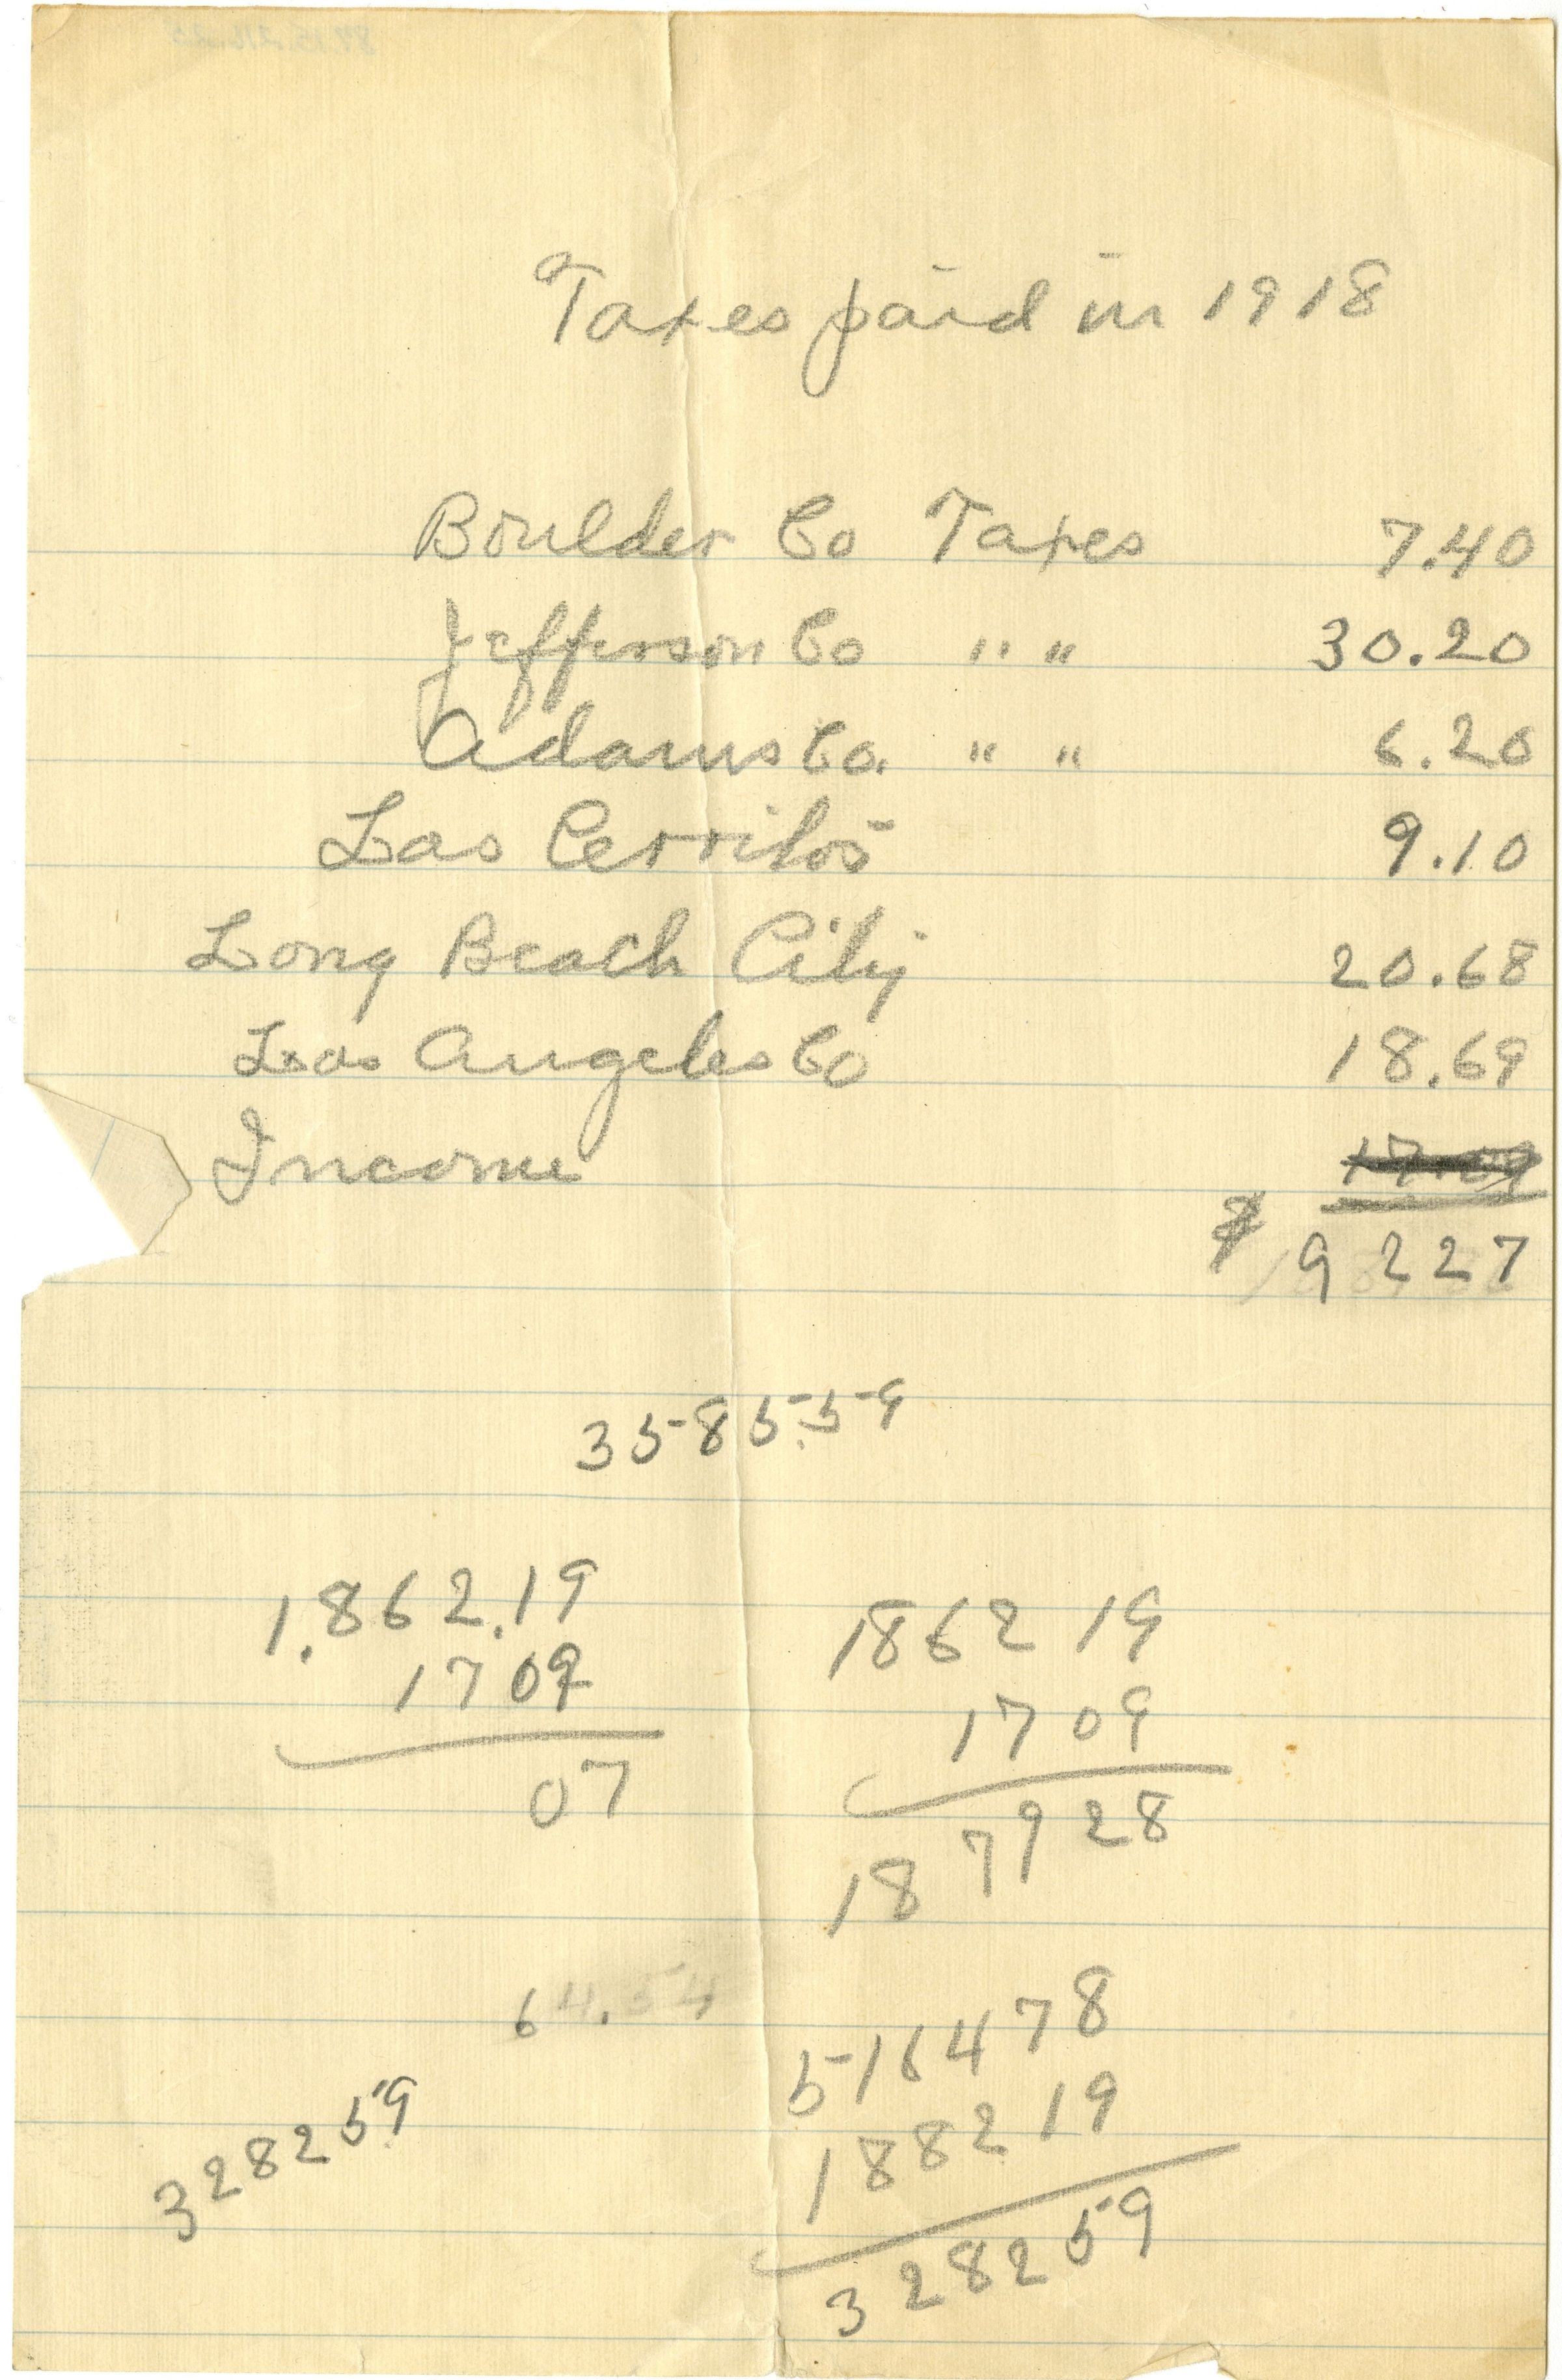 Taxes paid in 1918
Boulder Co Taxes 7.40
Jefferson Co " " 30.20
Adams Co. " " 6.20
Los Cerritos 9.10
Long Beach City 20.68
Los Angeles Co 18.69
Income 17.09
9227
3585.59
1.862.19
1709
07
1862 19
17 09
18 79 28
64.54
516478
188219
328259
328259